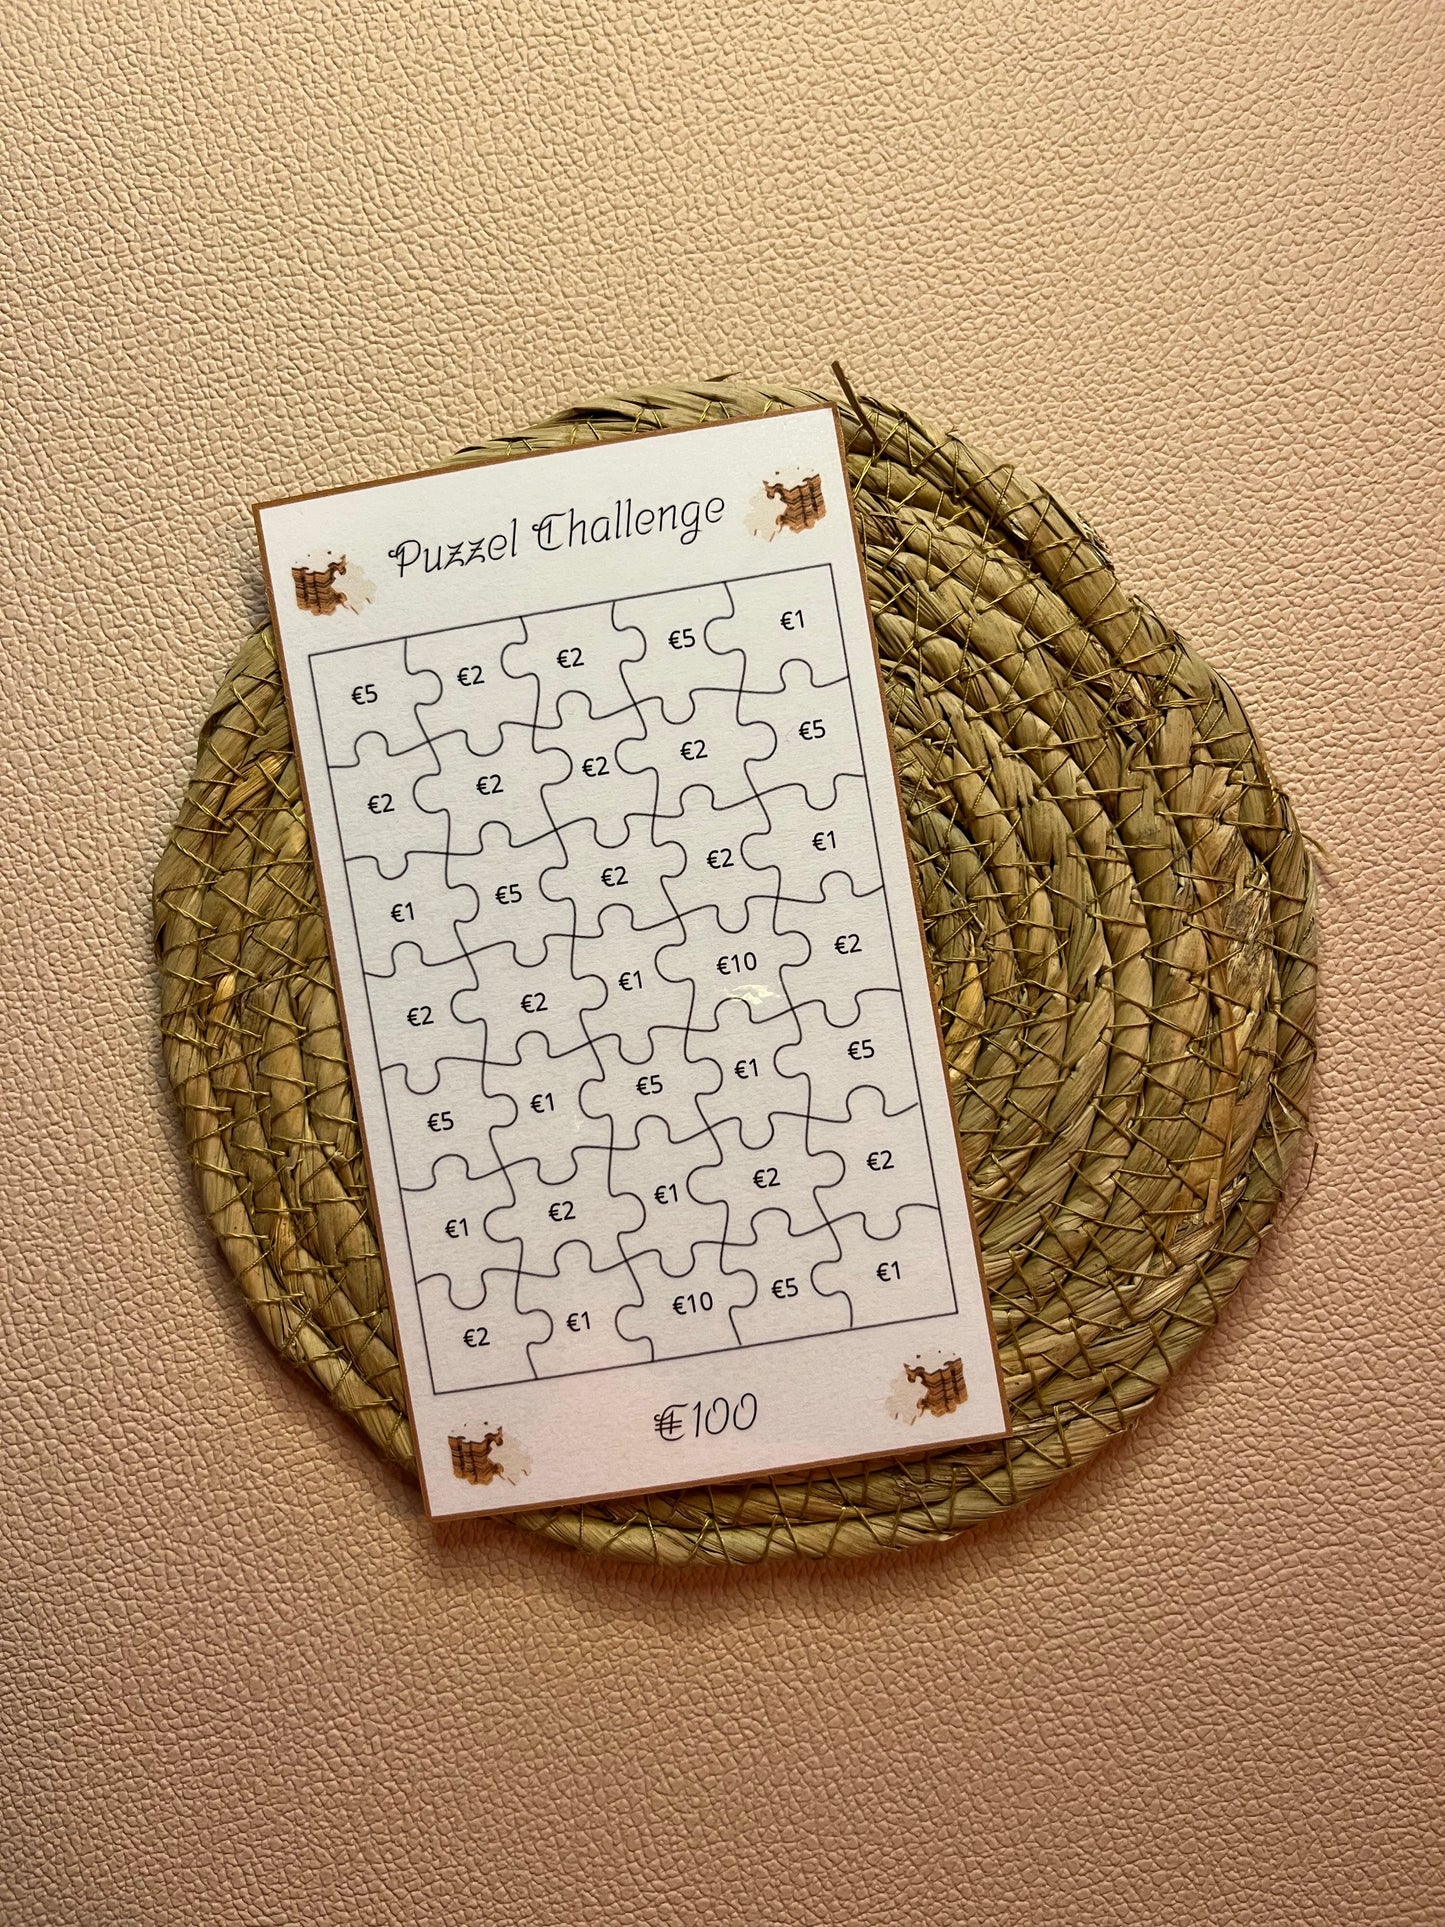 Puzzel Challenge
€5 €2 €2 €5 €1
€2 €2 €2 €2 €5
€1 €5 €2 €2 €1
€2 €2 €1 €10 €2
€5 €1 €5 €1 €5
€1 €2 €1 €2 €2
€2 €1 €10 €5 €1
€100